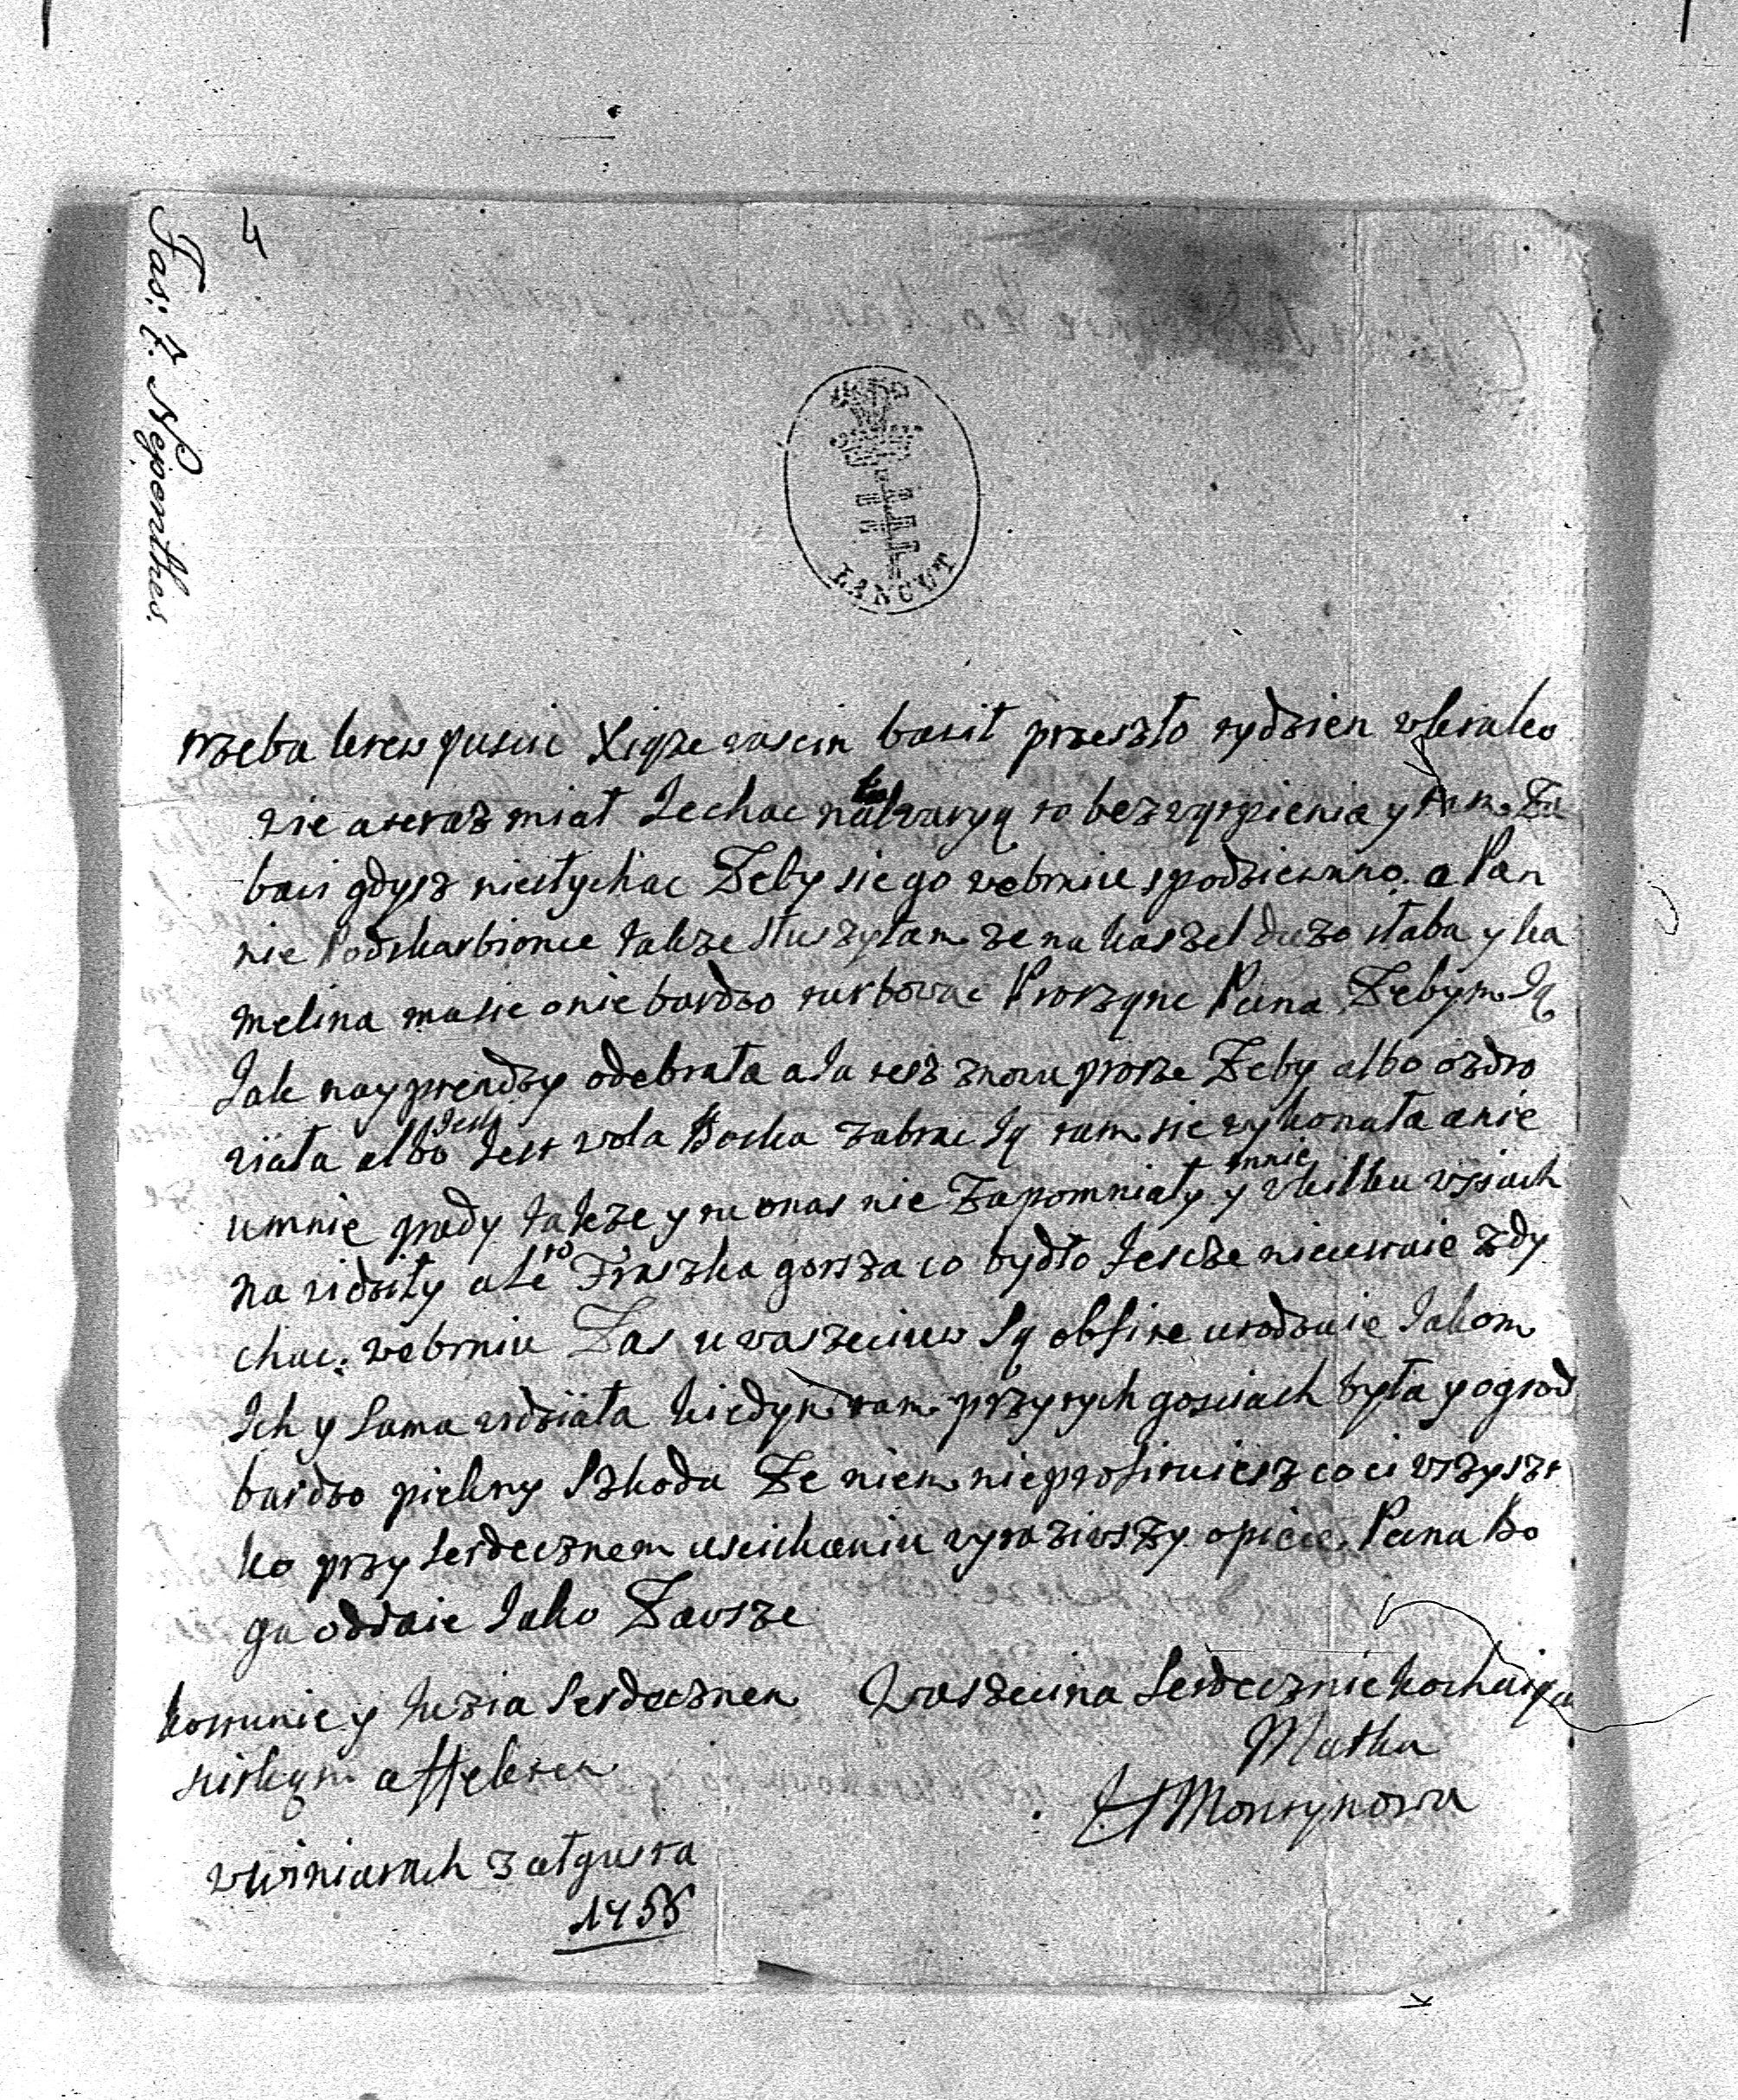 4
Fas: 7. Nepomthes.
ŁAŃCUT
trzeba krew puscic Xiąze wascin bawił przeszło tydzien wkrako
wie ateraz miał Iechac nakalwaryą to bezwątpienia y tam Za
bawi gdysz niesłychac Zeby sie go webrniu spodziewano. a Pan
nie Podskarbionce takze słuszyłam ze na kaszel duzo słaba y ka
melina masie onie bardzo turbowac Proszęne Pana Zebym Ią
Iak nayprendzy odebrała aIa tesz znowu prosze Zeby albo ozdro
wiała albo Iesli Iest wola Boska zabrac Ią tam sie wykonała anie
umnie grady takze y tu onas nie Zapomniały y mnie wkilku wsiach
na widziły ale to Fraszka gorsza co bydło Iescze nieustaie zdy
chac. webrniu Zas uwaszeciuw są obfite urodzaie Iakom
Ich y sama widziała kiedym tam przytych gosciach była y ogrod
bardzo piekny Szkoda Ze niem nieprofituiesz co ci wszyszt
ko przy serdecznem uscickaniu wyraziwszy opiece Pana Bo
ga oddaie Iako Zawsze
kostunie y Iuzia serdecznen
sciskam affekten
Waszecina serdecznie kochaiąca
Matka
UMoszynowa
wWiniarach 3 ałgusta
1758